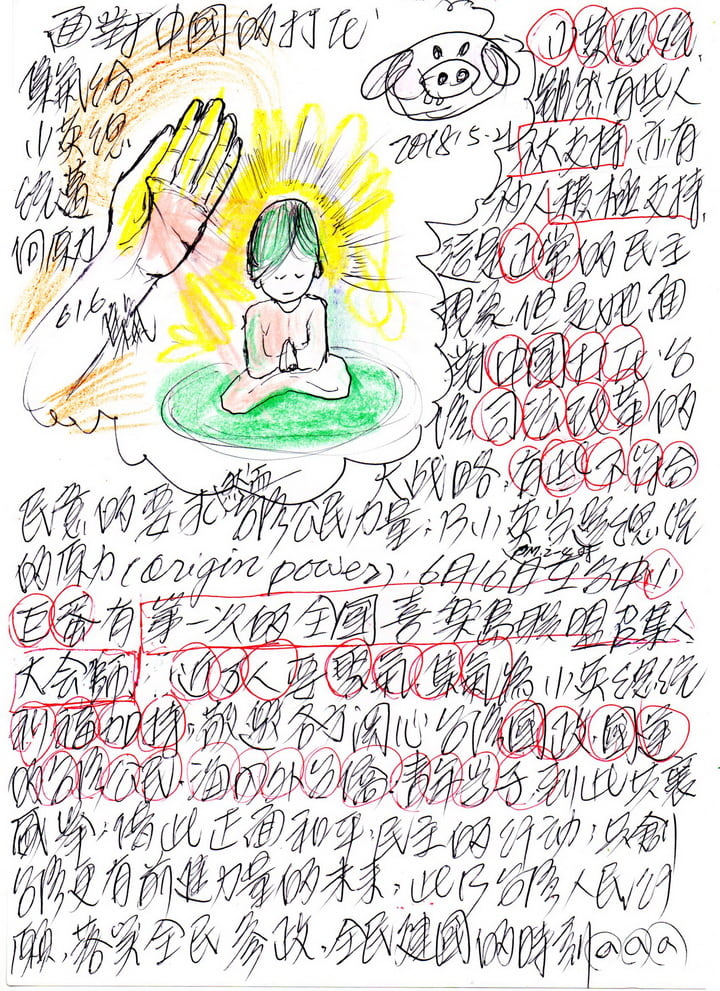 面對中國的打压
集氣給
小英總
統還
向原力
616
集氣
2018.5.21
小英總統,
雖然有些人
不大支持,亦有
些人積極支持,
這是正常的民主
現象,但是她面
對中國打压、台
灣司法改革的
大战略,有些不符合
民意的要求,然而台灣公民力量,乃小英當選總統
的原力(origin power),6月16日PM.2-4時在台中小
巨蛋有第一次的全國喜樂島聯盟召集人
大会師,近万人要聚氣,集氣為小英總統
祈福加持,敬邀各方関心台灣國政、國軍
的台灣公民、海内外台僑、青年學子,到此共襄
盛舉,借此正面和平、民主的行动,共創
台灣更有前進力量的未來,此乃台灣人民行
願,落實全民參政,全民建國的時刻@@@